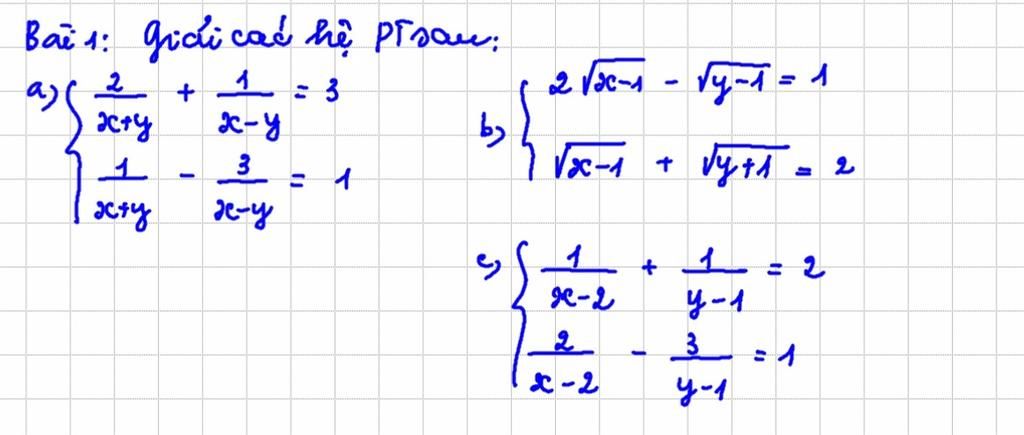 Bài 1: Giải các hệ PT sau:
a) { 2/(x+y) + 1/(x-y) = 3
1/(x+y) - 3/(x-y) = 1
b) { 2√(x-1) - √(y-1) = 1
√(x-1) + √(y+1) = 2
c) { 1/(x-2) + 1/(y-1) = 2
2/(x-2) - 3/(y-1) = 1